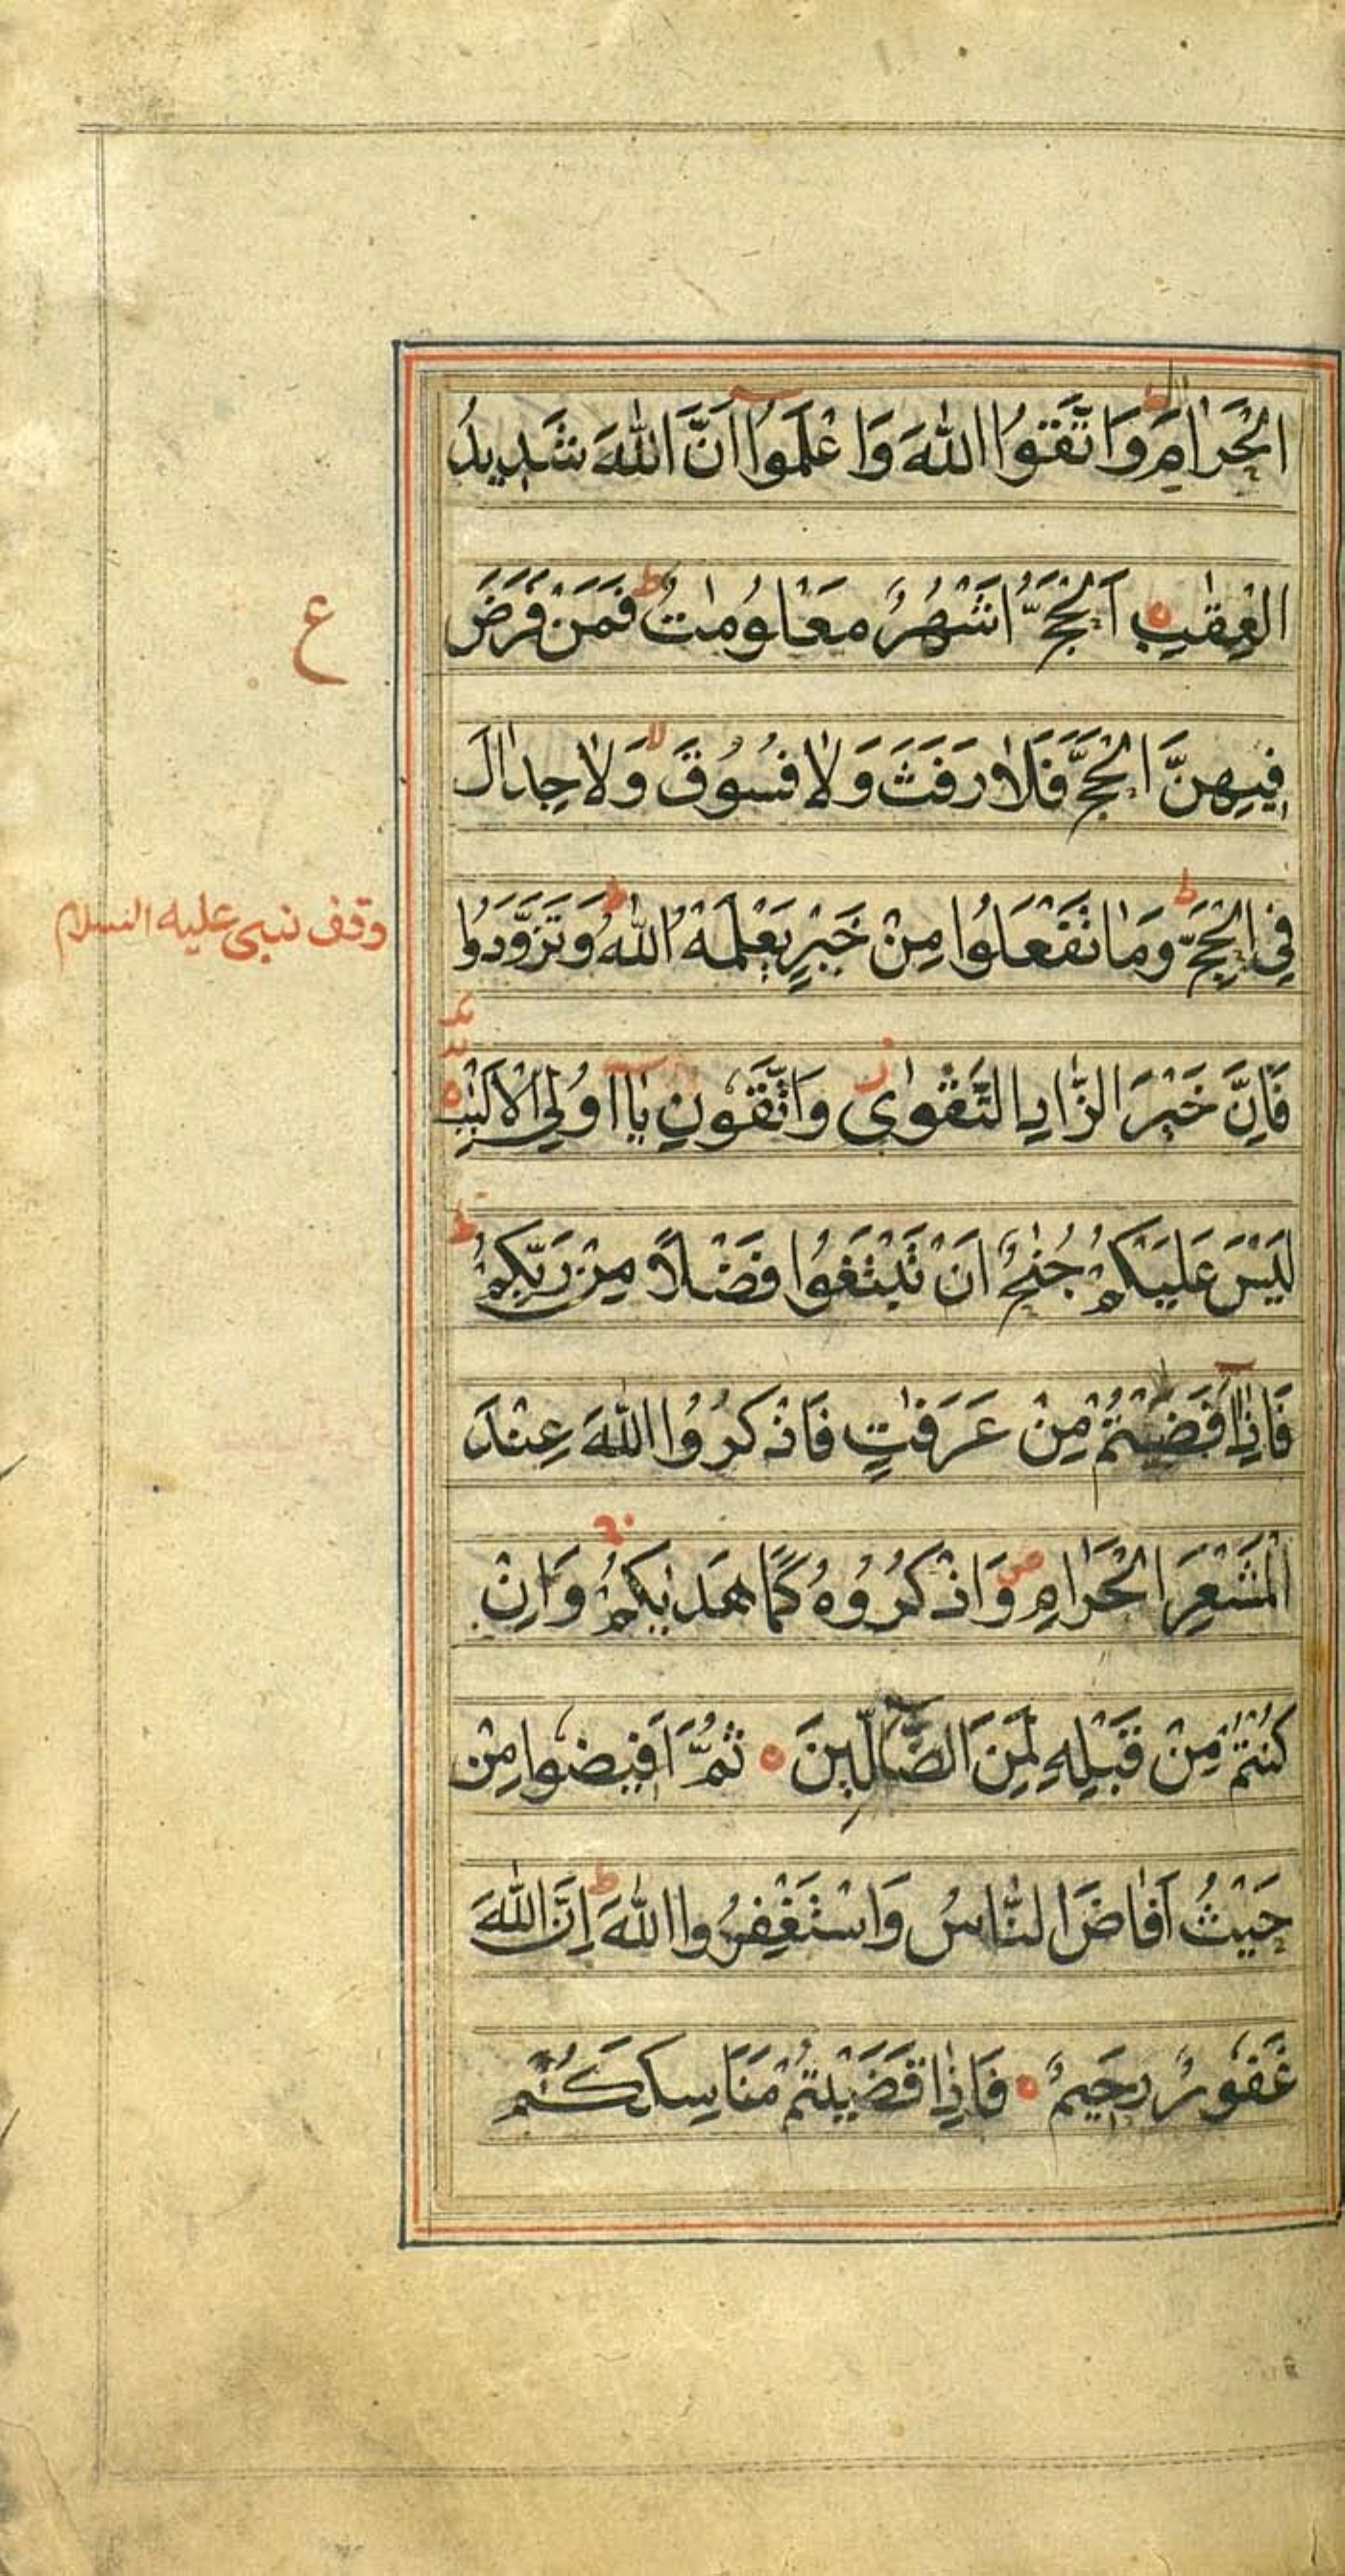 الْحَرَامِ ۖ وَاتَّقُوا اللّٰهَ وَاعْلَمُوا اَنَّ اللّٰهَ شَدِيدُ
ع
الْعِقٰبِ ه اَلْحَجُّ اَشْهُرٌ مَعْلُومٰتٌ ط فَمَنْ فَرَضَ
فِيهِنَّ الْحَجَّ فَلَا رَفَثَ وَلَا فُسُوقَ لا وَلَا جِدَالَ
وقف نبی علیه السلام
فِي الْحَجِّ ط وَمَا تَفْعَلُوا مِنْ خَيْرٍ يَعْلَمْهُ اللّٰهُ ط وَتَزَوَّدُوا
فَاِنَّ خَيْرَ الزَّادِ التَّقْوٰى ز وَاتَّقُونِ يَا اُولِي الْاَلْبٰبِ ه
لَيْسَ عَلَيْكُمْ جُنٰحٌ اَنْ تَبْتَغُوا فَضْلًا مِنْ رَبِّكُمْ ط
فَاِذَا اَفَضْتُمْ مِنْ عَرَفٰتٍ فَاذْكُرُوا اللّٰهَ عِنْدَ
الْمَشْعَرِ الْحَرَامِ ص وَاذْكُرُوهُ كَمَا هَدٰيكُمْ ج وَاِنْ
كُنْتُمْ مِنْ قَبْلِهِ لَمِنَ الضَّالِّينَ ه ثُمَّ اَفِيضُوا مِنْ
حَيْثُ اَفَاضَ النَّاسُ وَاسْتَغْفِرُوا اللّٰهَ ط اِنَّ اللّٰهَ
غَفُورٌ رَحِيمٌ ه فَاِذَا قَضَيْتُمْ مَنَاسِكَكُمْ